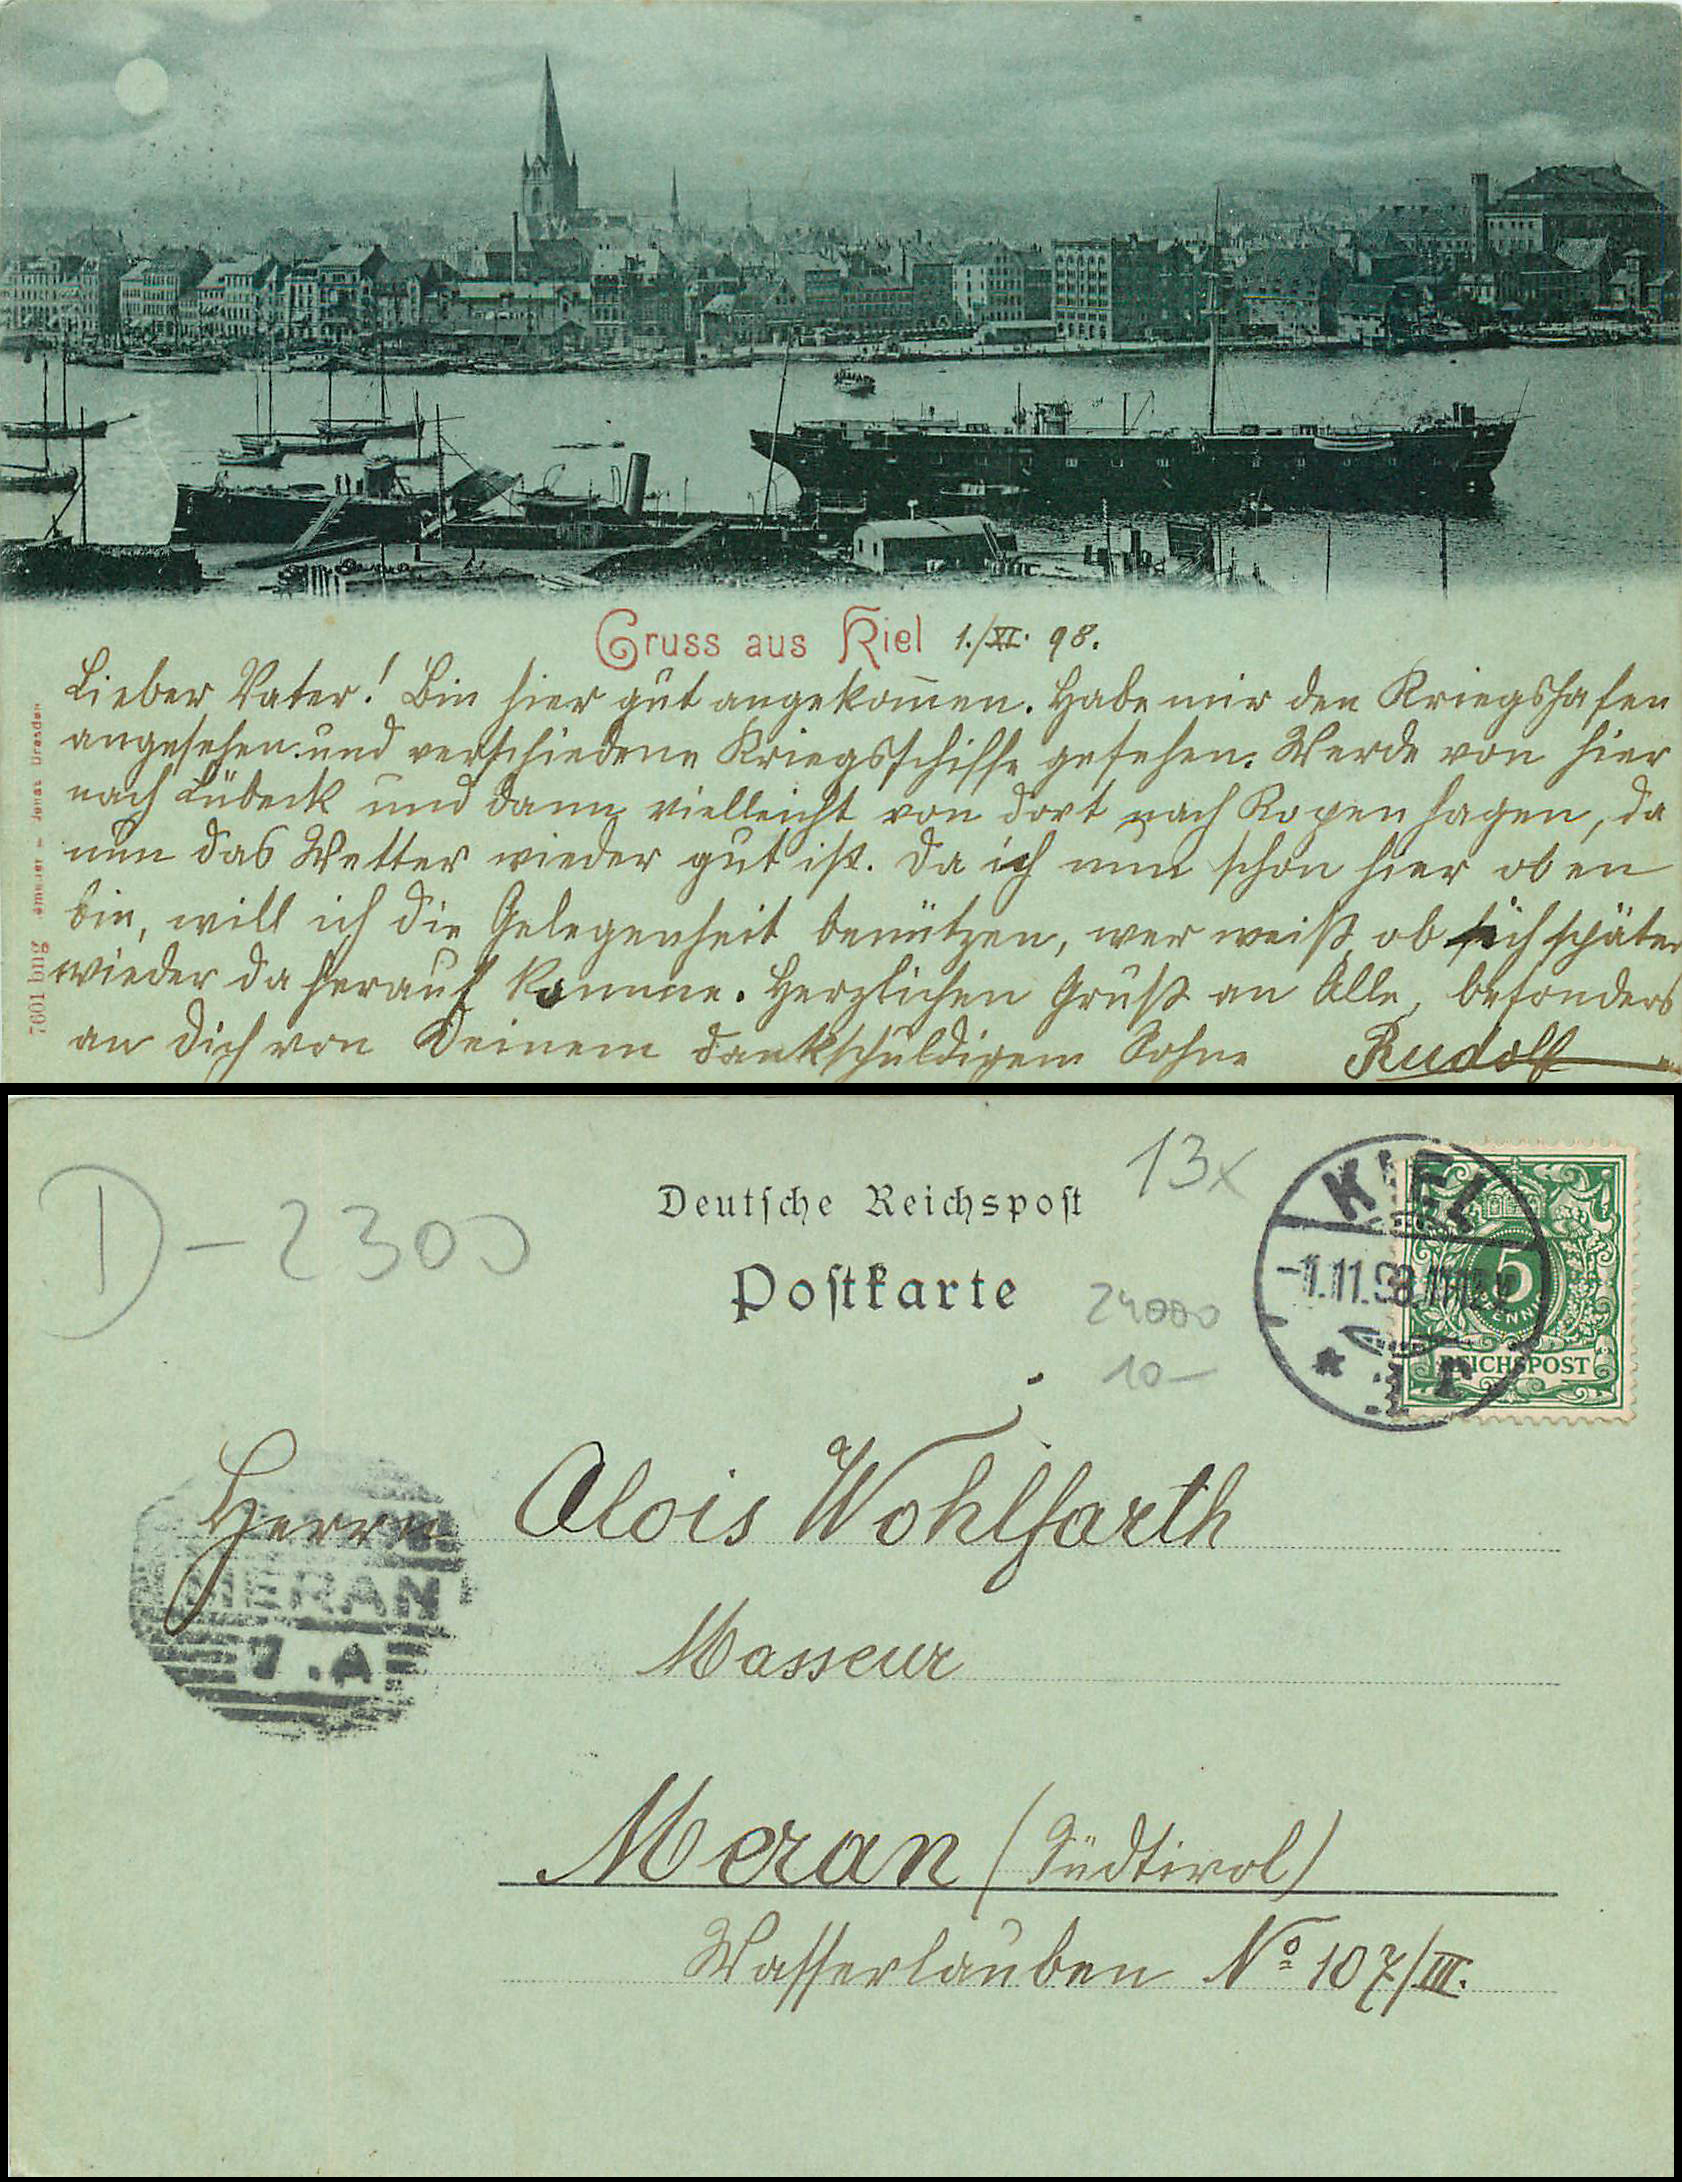 Gruss aus Kiel 1./XI. 98.
Lieber Vater! Bin hier gut angekom̄en. Habe mir den Kriegshafen
angesehen und verschiedene Kriegsschiffe gesehen. Werde von hier
nach Lübeck und dann vielleicht von dort nach Kopenhagen, da
nun das Wetter wieder gut ist. Da ich nun schon hier oben
bin, will ich die Gelegenheit benützen, wer weiß ob ich später
wieder da herauf komme. Herzlichen Gruß an Alle, besonders
an Dich von Deinem dankschuldigem Sohne Rudolf
7601 bug
Jonas Dresden
D-2300
13x
Deutsche Reichspost
Postkarte
24000
10-
KIEL
1.11.98.11-12V
5
PFENNIG
REICHSPOST
Herrn Alois Wohlfarth
MERAN
7.A
Masseur
Meran (Südtirol)
Wasserlauben Nº 107/III.